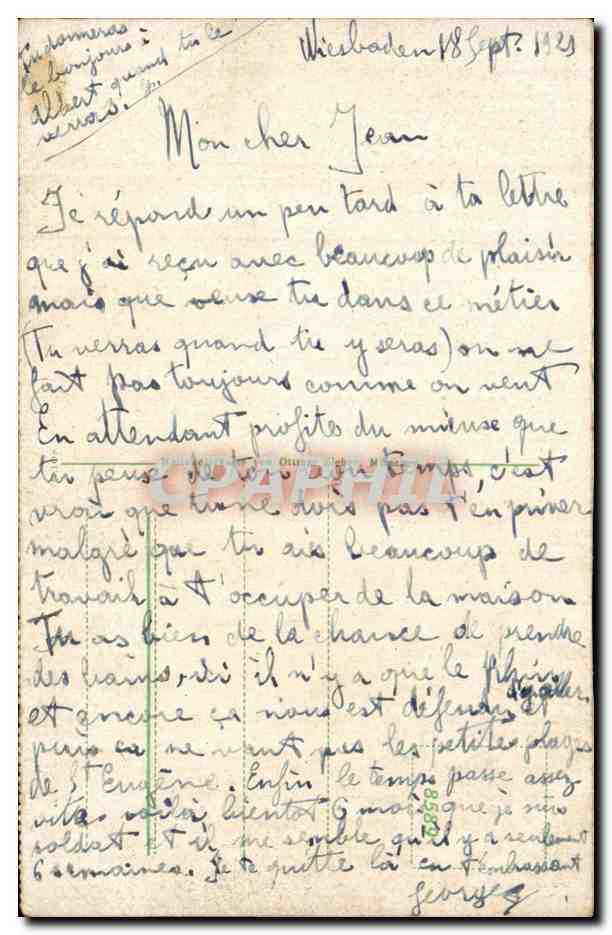 Tu donneras
le bonjours à
Albert quand tu le
verras. G.
Wiesbaden 18 Sept. 1921
Mon cher Jean
Je répond un peu tard à ta lettre
que j'ai reçu avec beaucoup de plaisir
mais que veuse tu dans ce métier
(Tu verras quand tu y seras) on ne
fait pas toujours comme on veut
En attendant profites du mieuse que
tu peuse de ton bon temps, c'est
CPAPHIL
vrai que tu ne dois pas t'en priver
malgré que tu ais beaucoup de
travail à t'occuper de la maison
Tu as bien de la chance de prendre
des bains, ici il n'y a que le Rhin
et encore ça nous est défendu d'y aller, et
puis ca ne vaut pas les petites plages
de St Eugène. Enfin le temps passe assez
vite voilà bientot 6 mois que je suis
soldat et il me semble qu'il y a seulement
6 semaines. Je te quitte là en t'embrassant
Georges
8589